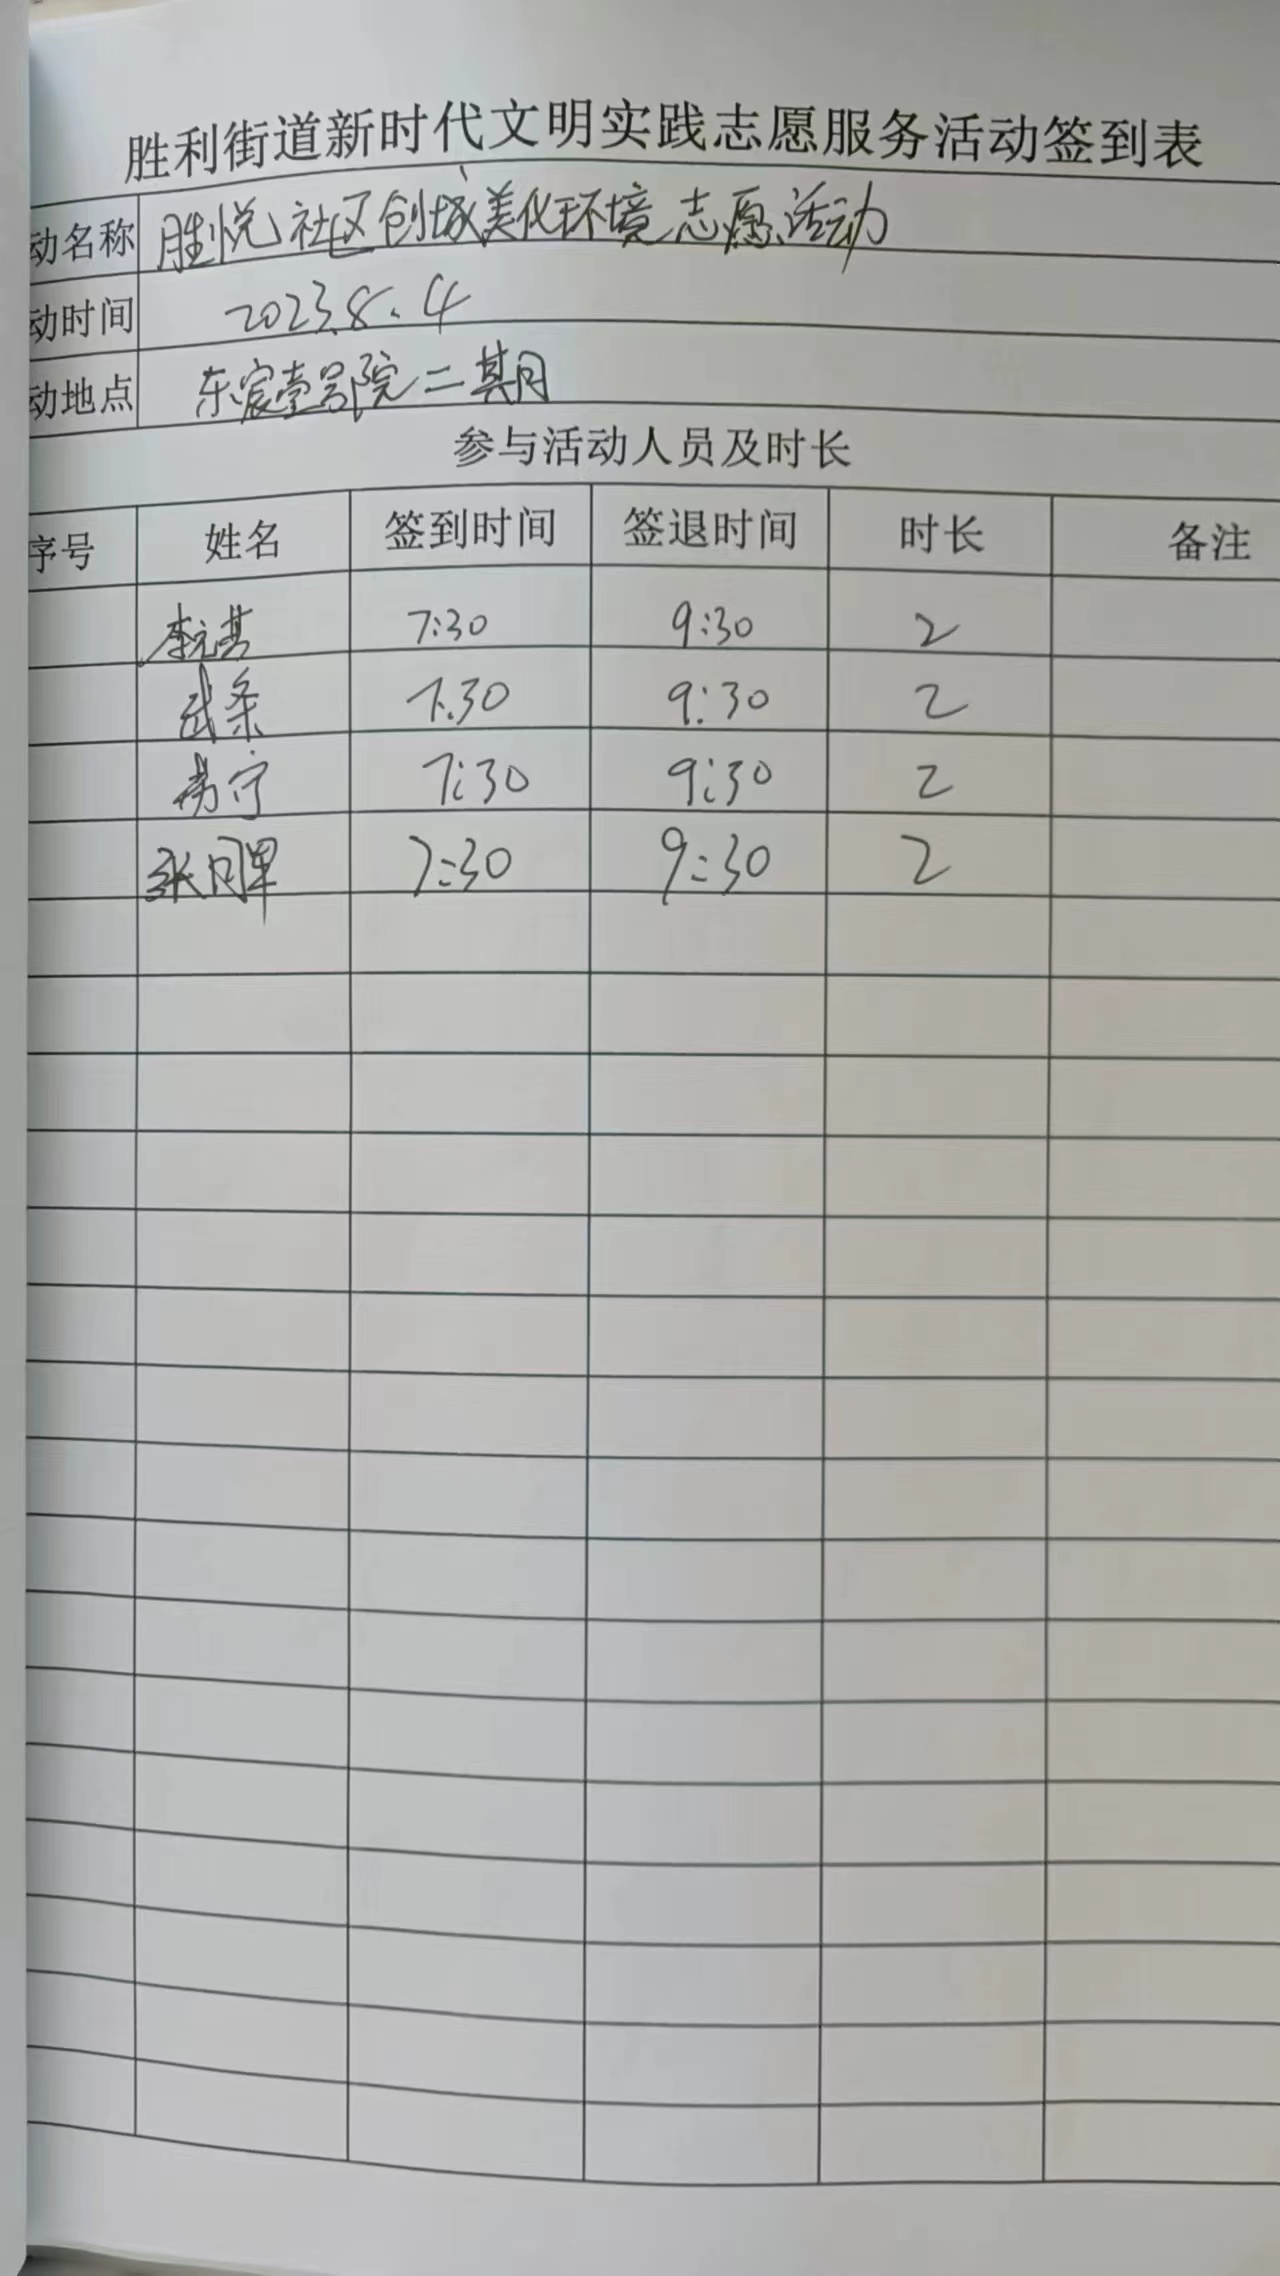 胜利街道新时代文明实践志愿服务活动签到表
动名称 胜悦社区创城美化环境志愿活动
动时间 2023.8.4
动地点 东宸壹号院二期
参与活动人员及时长
序号 姓名 签到时间 签退时间 时长 备注
李元其 7:30 9:30 2
武条 7:30 9:30 2
宁 7:30 9:30 2
张 7:30 9:30 2